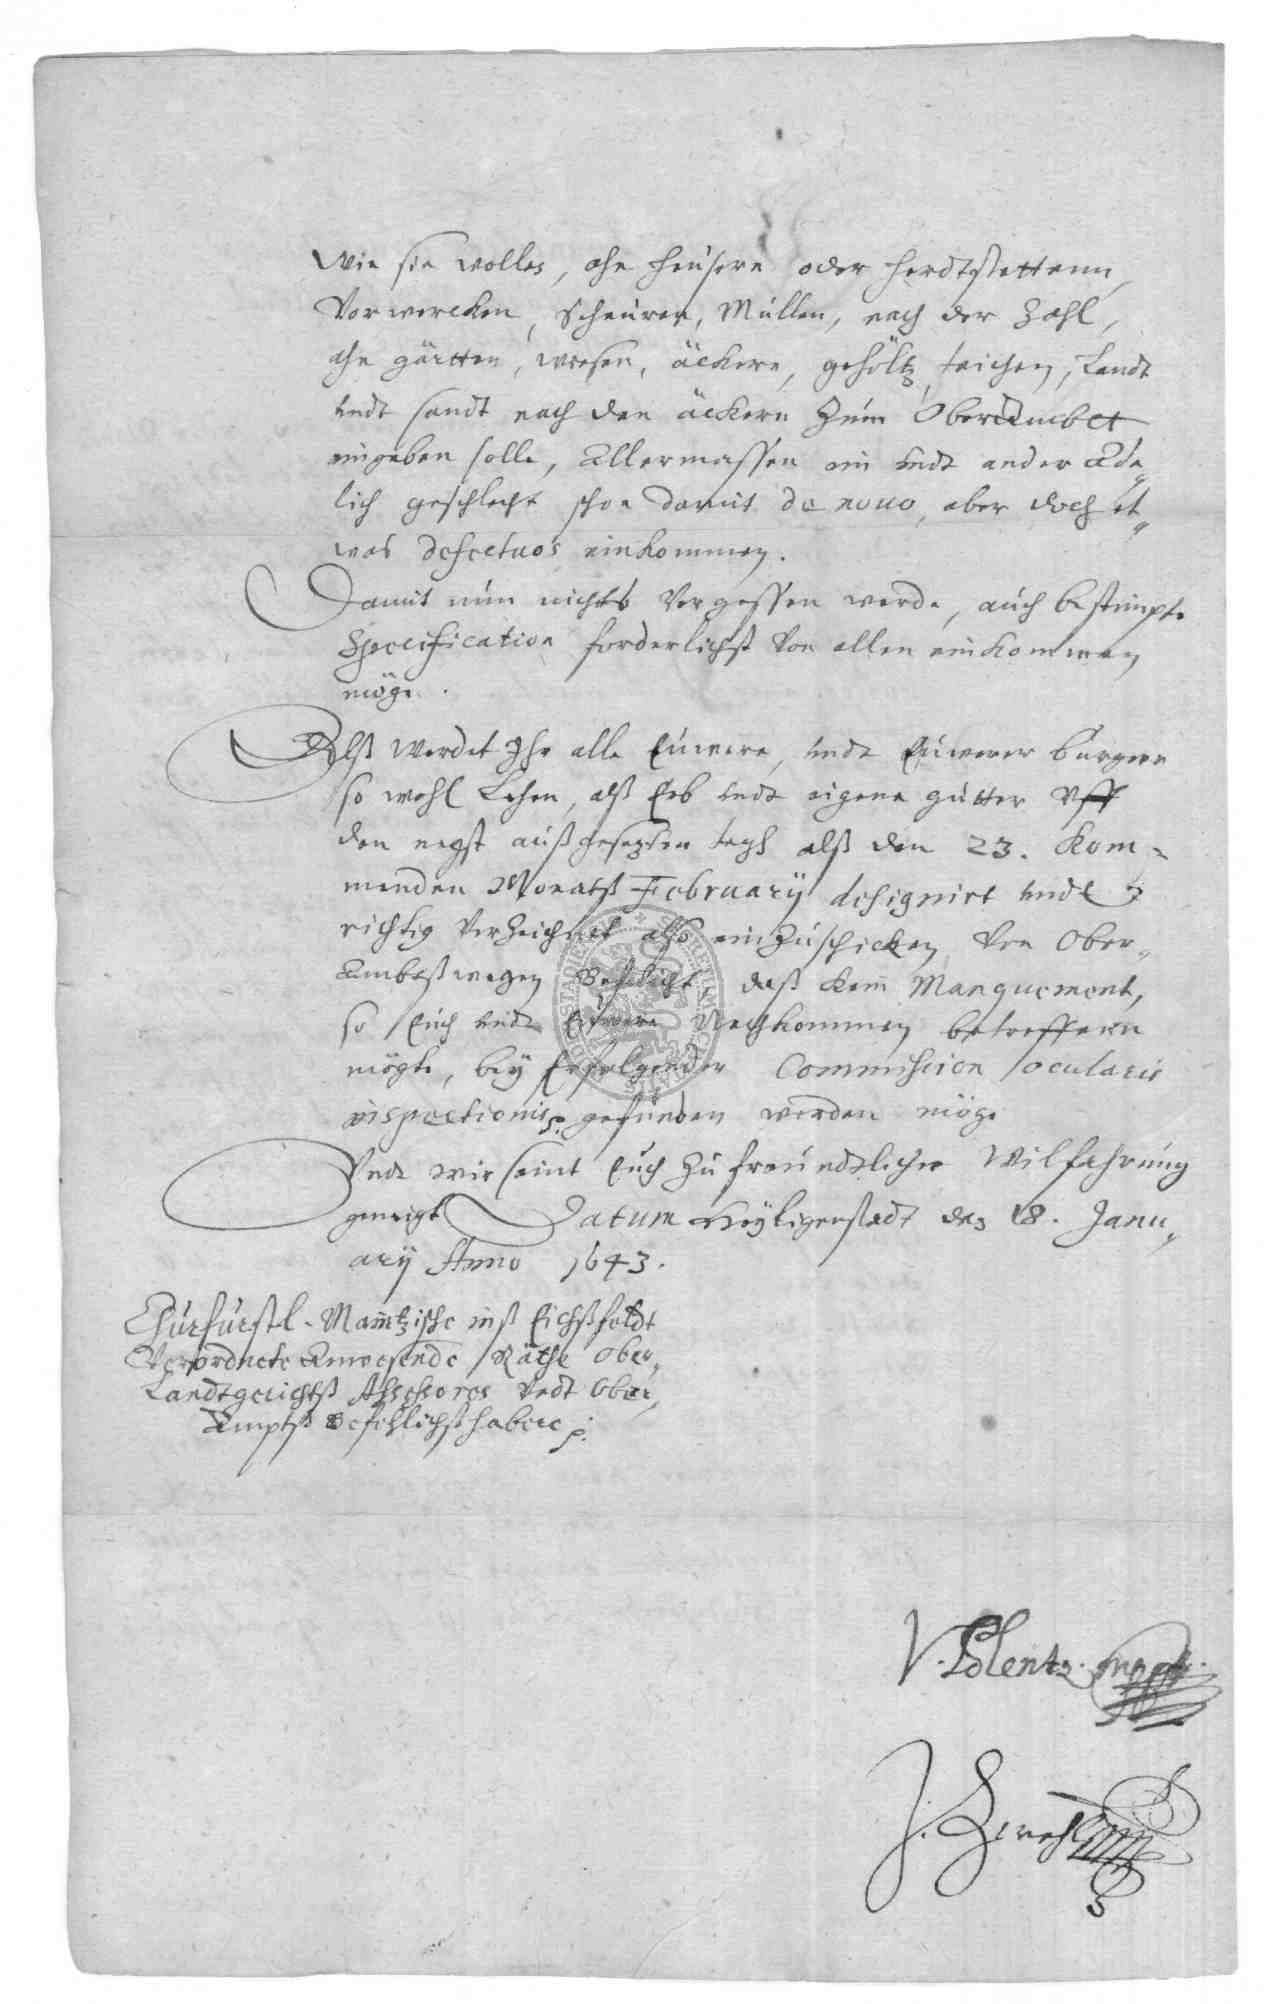 wie sie wolles, ahn heusern oder herdtstettenn,
Vorwercken, Scheuren, Mullen, nach der Zahl,
ahn gärtten, wiesen, äckern, gehöltz, teichen, Landt
undt sandt nach den äckern Zum Oberambet
eingeben solle, Allermassen ein undt ander Ade„
lich geschlecht schon damit de novo, aber doch et„
was defectuos einkommen.
Damit nun nichts Vergessen werde, auch bestimpte
Specification forderlichst von allen einkommen
möge.
Alß werdet Ihr alle Euwere, undt Euwerer burgere
so wohl Lehen, alß Erb undt eigene gütter Uff
den negst außgesezten tagk alß den 23. Kom=
menden Monatß February designirt undt
richtig Verzeichnet also einzuschicken von Ober„
Ambtßwegen Befelicht, daß kein Manquement,
so Euch undt Euwere Nachkommen betreffenn
mögte, bey Erfolgender Commission ocularis
inspectionis p. gefunden werden möge
Undt wir seint Euch zu freundtlicher Wilfahrung
geneigt Datum Heyligenstadt den 18. Janu„
ary Anno 1643.
Churfürstl. Maintzische inß Eichßfeldt
Verordnete Anwesende Räthe Ober„
Landtgerichtß Assessores Undt Ober„
Amptß Befehlichßhabere p.
V. Polentz. mpp.
SIGILLUM